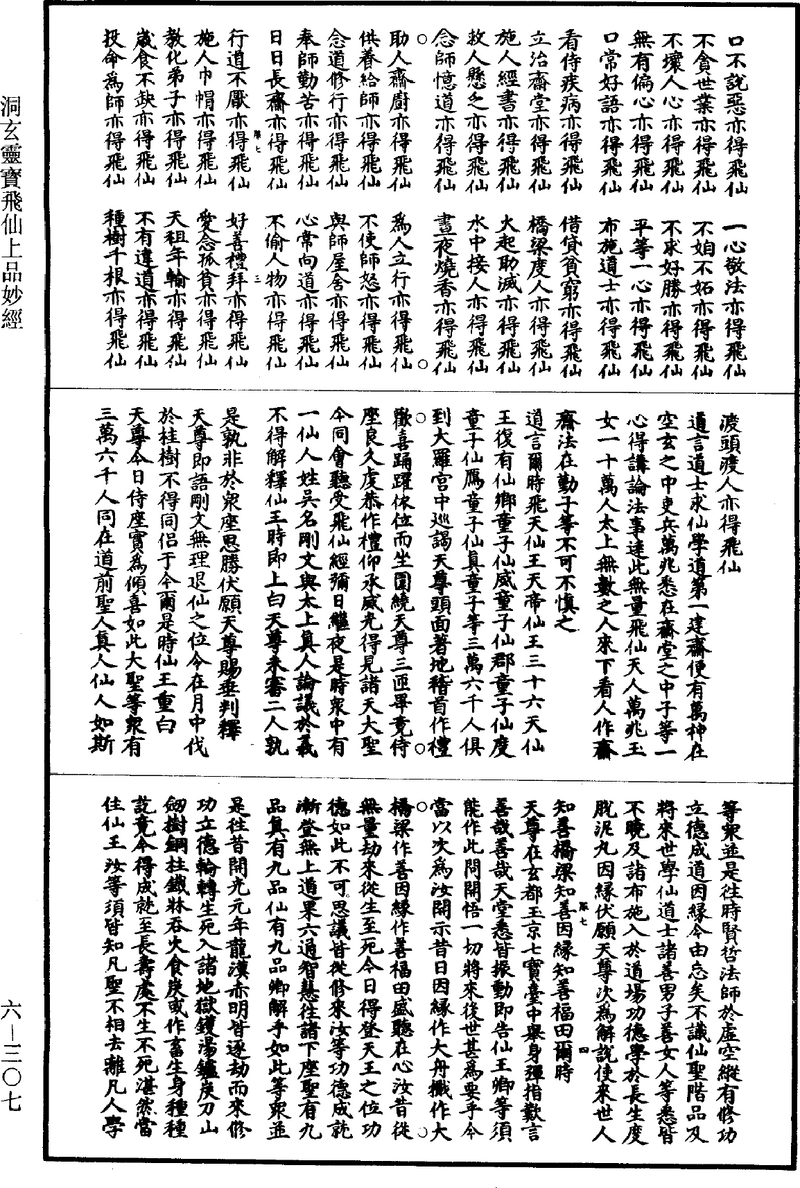 口不說惡亦得飛仙　一心敬法亦得飛仙
不貪世榮亦得飛仙　不妲不妬亦得飛仙
不壞人心亦得飛仙　不求好勝亦得飛仙
無有偏心亦得飛仙　平等一心亦得飛仙
口常好語亦得飛仙　布施道士亦得飛仙
看侍疾病亦得飛仙　借貸貧窮亦得飛仙
立治齋堂亦得飛仙　橋梁度人亦得飛仙
施人經書亦得飛仙　火起助滅亦得飛仙
救人懸乏亦得飛仙　水中接人亦得飛仙
念師憶道亦得飛仙　晝夜燒香亦得飛仙
助人齋廚亦得飛仙　為人立行亦得飛仙
供養給師亦得飛仙　不使師怒亦得飛仙
念道修行亦得飛仙　與師屋舍亦得飛仙
奉師勤苦亦得飛仙　心常向道亦得飛仙
日日長齋亦得飛仙　不偷人物亦得飛仙
弟七　三
行道不厭亦得飛仙　好喜禮拜亦得飛仙
施人巾帽亦得飛仙　愛念孤貧亦得飛仙
教化弟子亦得飛仙　天租年輸亦得飛仙
歲食不缺亦得飛仙　不有違道亦得飛仙
投命為師亦得飛仙　種樹千根亦得飛仙
渡頭渡人亦得飛仙
道言道士求仙學道第一建齋便有萬神在
空玄之中吏兵萬兆悉在齋堂之中子等一
心得講論法事達此無量飛仙天人萬兆玉
女一十萬人太上無數之人來下看人作齋
齋法在勤子等不可不慎之
道言爾時飛天仙王天帝仙王三十六天仙
王復有仙鄉童子仙威童子仙郡童子仙度
童子仙鷹童子仙真童子等三萬六千人俱
到大羅宮中巡謁天尊頭面著地稽首作禮
歡喜踊躍依位而坐圍繞天尊三匝畢竟侍
座良久虔恭作禮仰承威光得見諸天大聖
今同會聽受飛仙經彌日繼夜是時眾中有
一仙人姓吳名剛文與太上真人論議於義
不得解釋仙王時即上白天尊未審二人孰
是孰非於眾座思勝伏願天尊賜垂判釋
天尊即語剛文無理退仙之位今在月中伐
於桂樹不得同侶于今爾是時仙王重白
天尊今日侍座實為傾喜如此大聖等眾有
三萬六千人同在道前聖人真人仙人如斯
等眾並是往時賢哲法師於虛空縱有修功
立德成道因緣今由忘矣不識仙聖階品及
將來世學仙道士諸善男子善女人等悉皆
不曉及諸布施入於道場功德學於長生度
脫泥丸因緣伏願天尊次為解說使來世人
知善橋梁知善因緣知善福田爾時
弟七　四
天尊在玄都玉京七寶臺中舉身彈指歎言
善哉善哉天堂悉皆振動即告仙王卿等須
能作此問開悟一切將來後世甚為要乎今
當以次為汝開示昔日因緣作大舟檝作大
橋梁作善因緣作善福田盛聽在心汝昔從
無量劫來從生至死今日得登天王之位功
德如此不可思議皆從修來汝等功德成就
漸登無上道果六通智慧往諸下座聖有九
品真有九品仙有九品卿解乎如此等眾並
是往昔開光元年龍漢赤明皆逐劫而來修
功立德輪轉生死入諸地獄鑊湯鑪炭刀山
劒樹銅柱鐵牀吞火食炭或作畜生身種種
訖竟今得成就至長壽處不生不死湛然當
住仙王汝等須皆知凡聖不相去離凡人學
洞玄靈寶飛仙上品妙經
六—三〇七